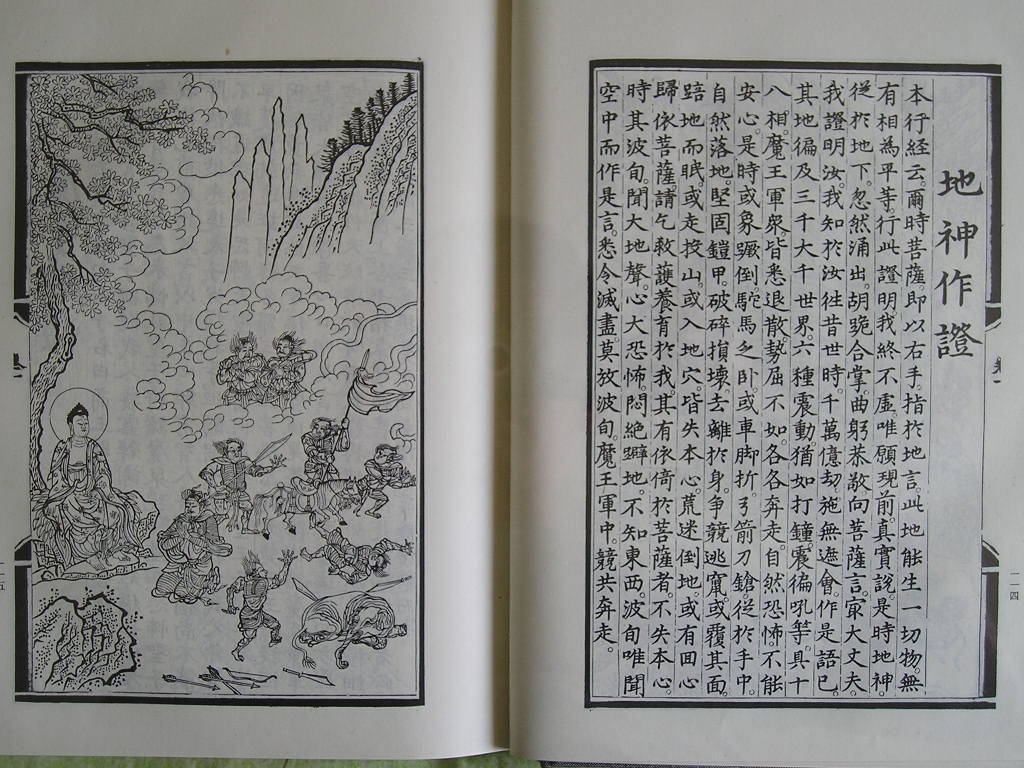 地神作證
本行経云。爾時菩薩即以右手。指於地言。此地能生一切物。無
有相為平等行。此證明我終不虛。唯願現前。真實說。是時地神。
從於地下。忽然涌出。胡跪合掌。曲躬恭敬。向菩薩言。寂大丈夫。
我證明汝。我知於汝。往昔世時。千萬億劫。施無遮會。作是語已。
其地徧及三千大千世界。六種震動。猶如打鐘。震徧吼等。具十
八相。魔王軍衆。皆悉退散。勢屈不如。各各奔走。自然恐怖。不能
安心。是時或象蹶倒。駝馬乏卧。或車脚折。弓箭刀鎗。從於手中。
自然落地。堅固鎧甲。破碎損壞。去離於身。爭競逃竄。或覆其面。
踣地而眠。或走投山。或入地穴。皆失本心。荒迷倒地。或有回心
歸依菩薩。請乞救護養育於我。其有依倚於菩薩者。不失本心。
時其波旬。聞大地聲。心大恐怖。悶絕躃地。不知東西。波旬唯聞
空中而作是言。悉令滅盡。莫放波旬。魔王軍中。競共奔走。
一一四
一一五